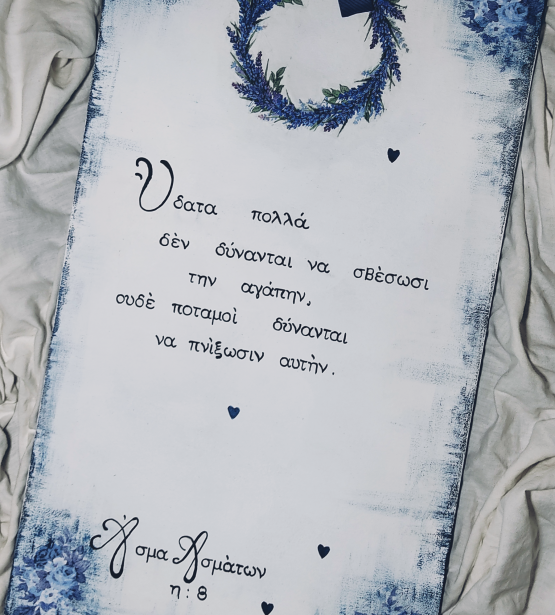 Ὑδατα πολλά
δὲν δύνανται να σβὲσωσι
την αγάπην,
ουδὲ ποταμοὶ δύνανται
να πνὶξωσιν αυτὴν.
Ἆσμα Ασμὰτων
η : 8